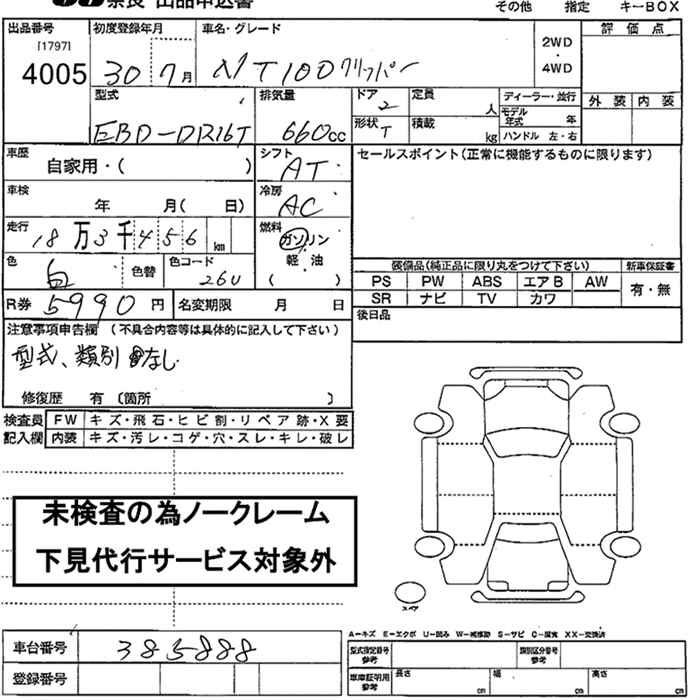 奈良 出品申込書 その他 指定 キーBOX
出品番号 初度登録年月 車名・グレード 評価点
[1797] 2WD
4005 30 7月 NT100クリッパー ・
4WD
型式 排気量 ドア 2 定員 人 ディーラー・並行 外装 内装
EBD-DR16T 660cc 形状 T 積載 kg モデル年式 年
ハンドル 左・右
車歴 自家用・( ) シフト AT セールスポイント(正常に機能するものに限ります)
車検 年 月( 日) 冷房 AC
走行 18万3千456km 燃料 ガソリン
軽・油
( )
色 白 色替 色コード 26U 装備品(純正品に限り丸をつけて下さい) 新車保証書
PS PW ABS エアB AW 有・無
SR ナビ TV カワ
R券 5990円 名変期限 月 日 後日品
注意事項申告欄 (不具合内容等は具体的に記入して下さい)
型式、類別なし
修復歴 有 〔箇所 〕
検査員 FW キズ・飛石・ヒビ割・リペア跡・X要
記入欄 内装 キズ・汚レ・コゲ・穴・スレ・キレ・破レ
未検査の為ノークレーム
下見代行サービス対象外
スペア
A-キズ E-エクボ U-凹み W-補修跡 S-サビ C-腐食 XX-交換済
車台番号 385888 型式指定番号 参考 類別区分番号 参考
登録番号 車庫証明用 参考 長さ cm 幅 cm 高さ cm